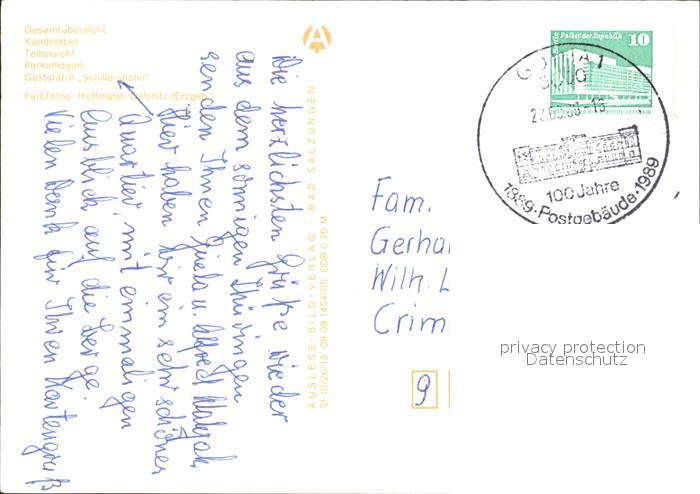 Gesamtübersicht
Kandelaber
Teilansicht
Parkanlagen
Gaststätte „Schillershöhe"
Farbfotos: Hoffmann, Oelsnitz (Erzgeb.)
Die herzlichsten Grüße wieder
aus dem sonnigen Thüringen
senden Ihnen Gisela u. Alfred
Hier haben wir ein sehr schönes
Quartier, mit einmaligen
Ausblick auf die Berge.
Vielen Dank für Ihren Kartengruß
AUSLESE-BILD-VERLAG · BAD SALZUNGEN
09 09 1454/05 DDR 0,20 M
Palast der Republik
10
GOTHA 1
100 Jahre
1889·Postgebäude·1989
Fam.
Gerha
Wilh. L
Crim
9
privacy protection
Datenschutz